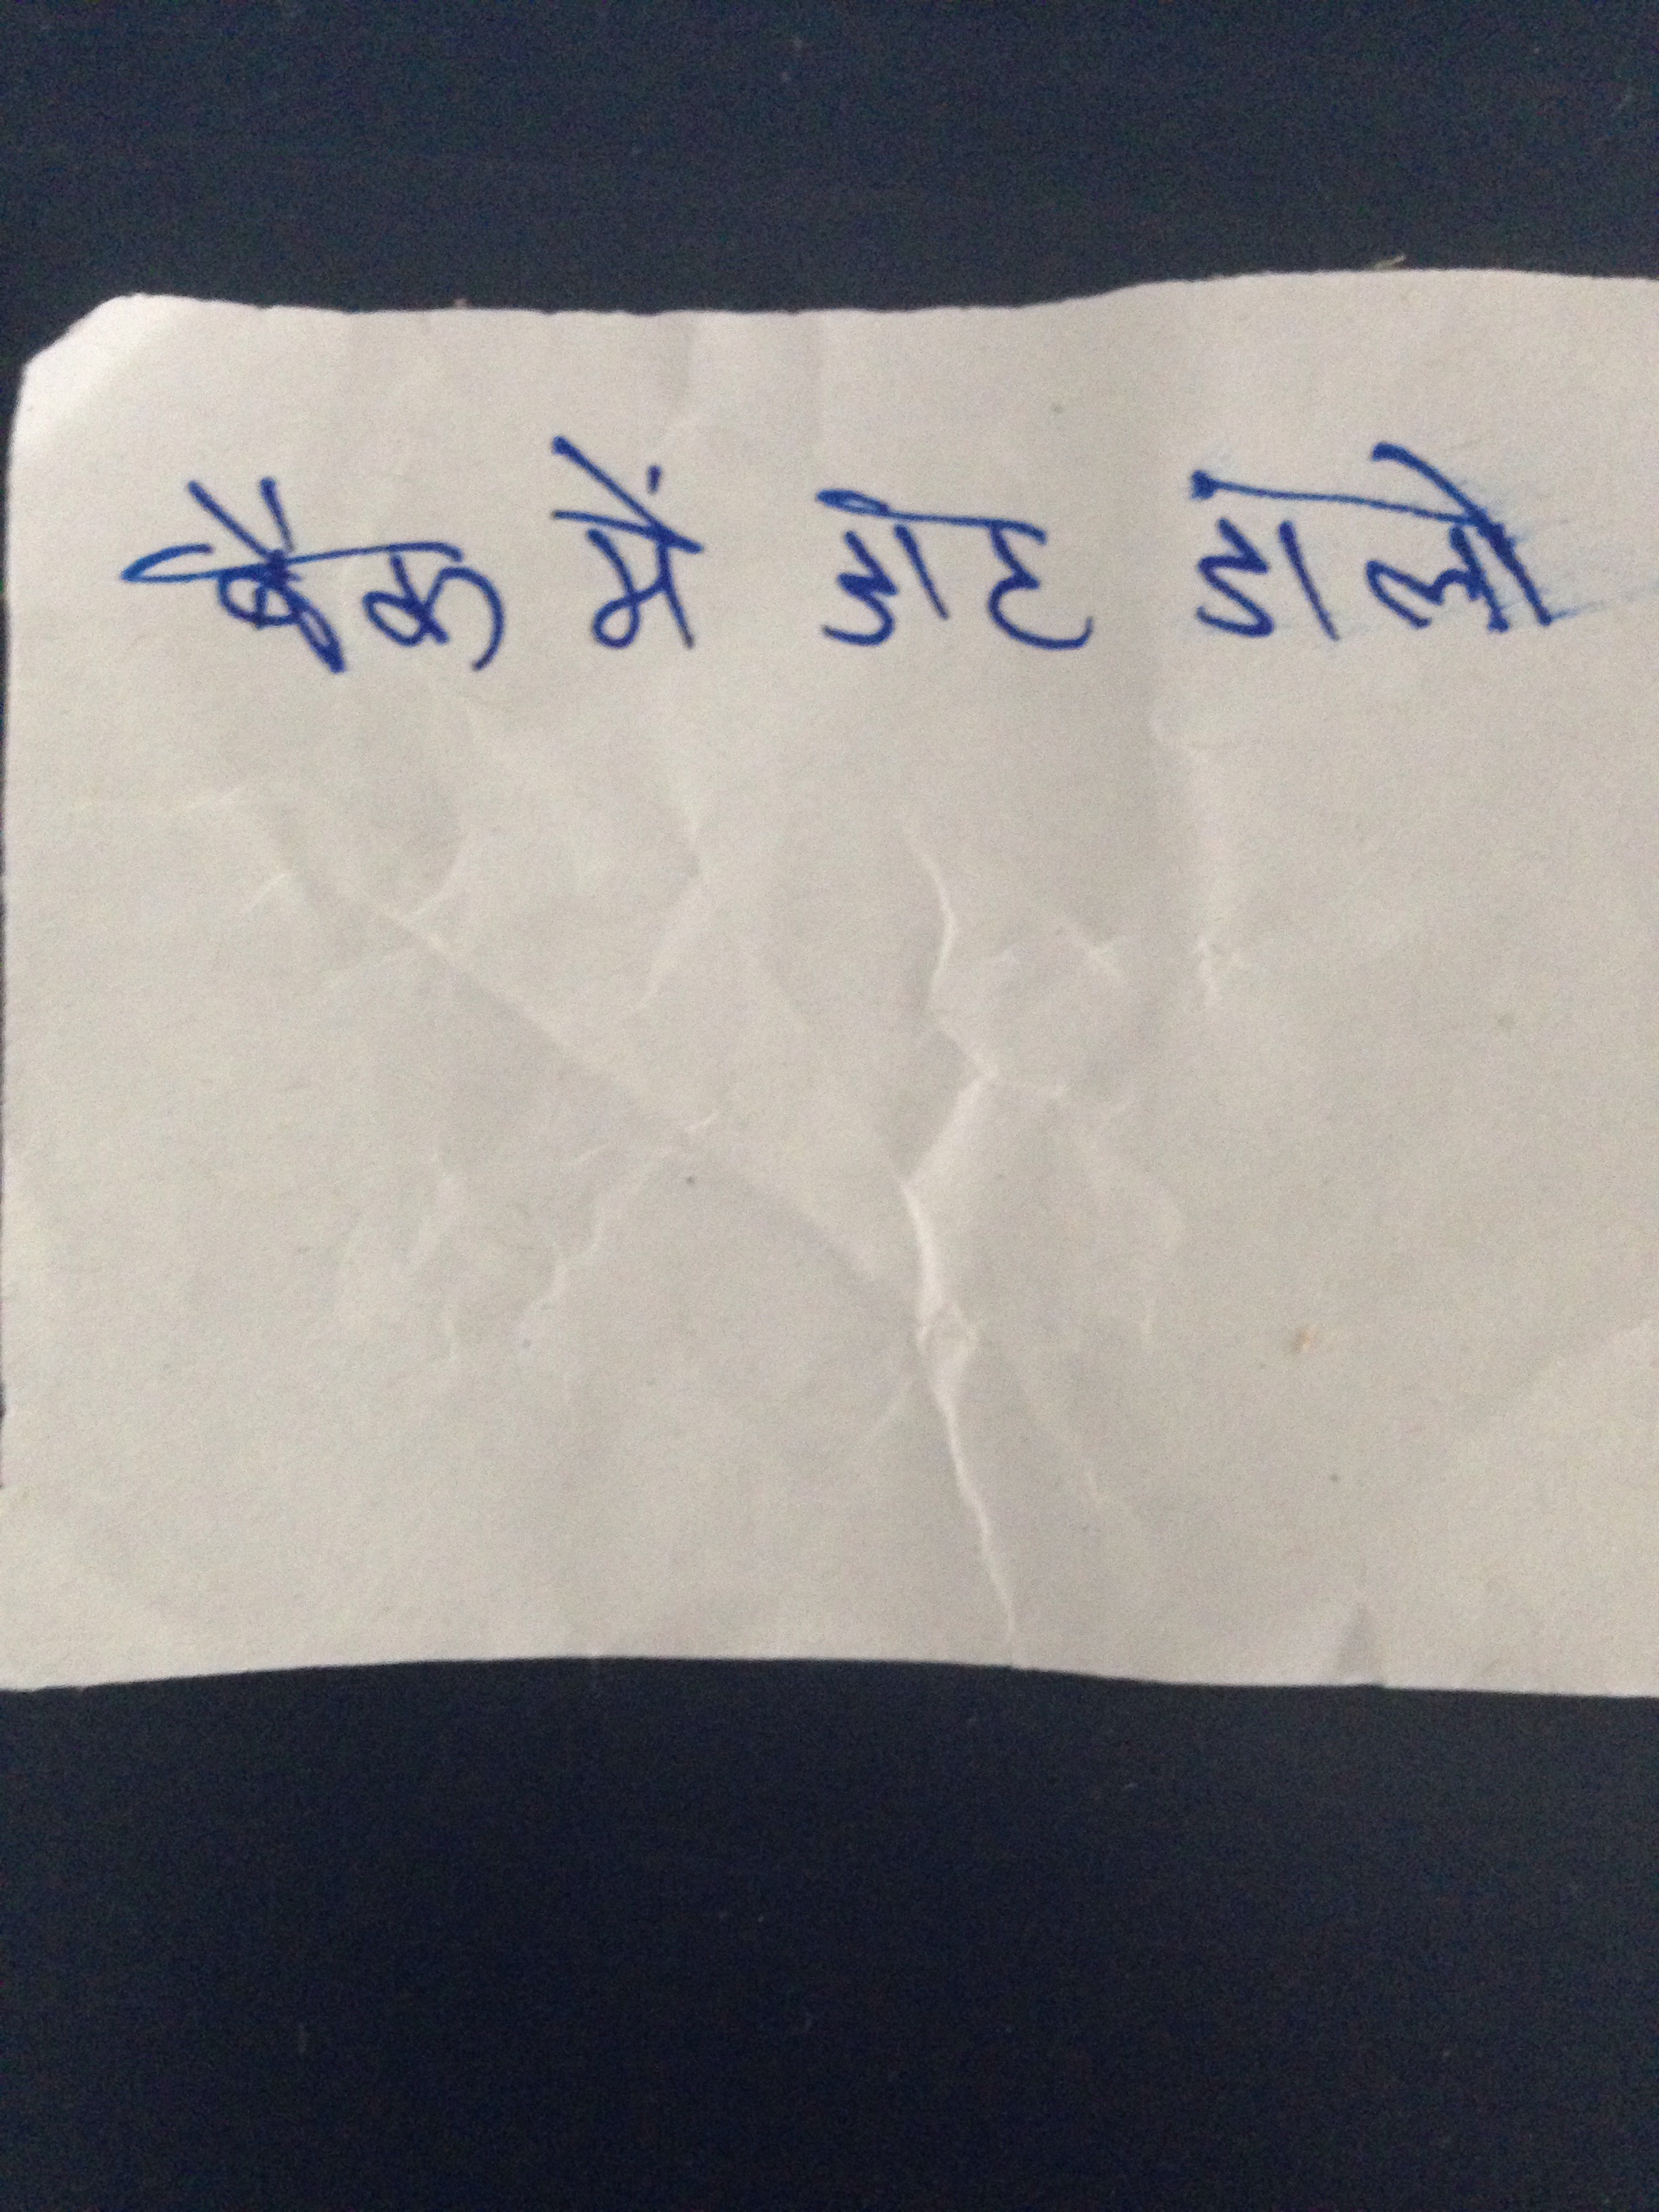 बैंक में डाट डालो